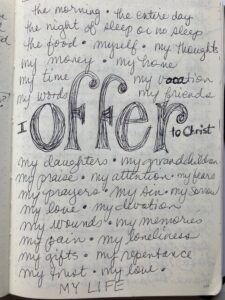 the morning • the entire day
the night of sleep or no sleep
the food • myself • my thoughts
my money • my home
my time my vocation
my words my friends
I offer to Christ
my daughters • my grandchildren
my praise • my attention • my fears
my prayers • my sin • my sorrow
my love • my devotion
my wounds • my memories
my pain • my loneliness
my gifts • my repentance
my trust • my love •
MY LIFE